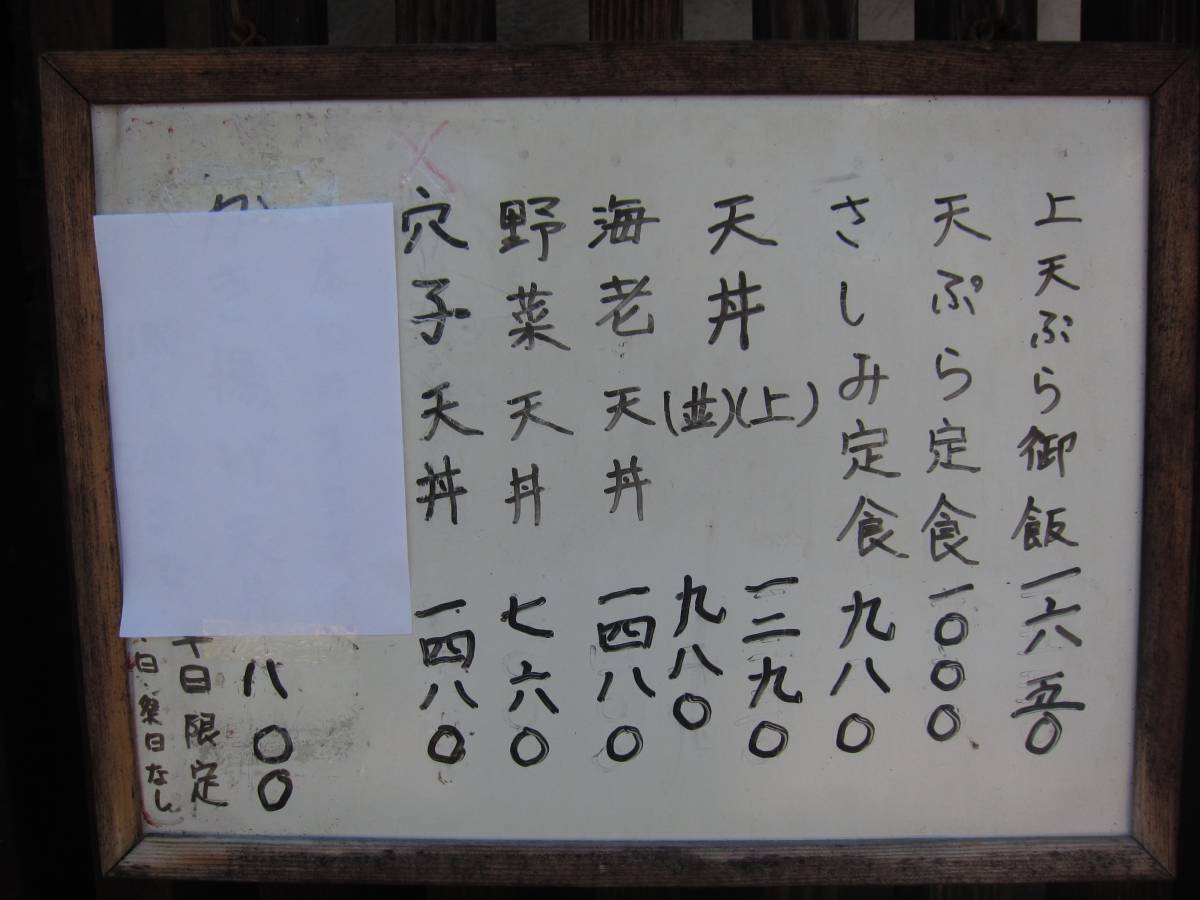 上天ぷら御飯 一六五〇
天ぷら定食 一〇〇〇
さしみ定食 九八〇
天丼 (上) 一二九〇
(並) 九八〇
海老天丼 一四八〇
野菜天丼 七六〇
穴子天丼 一四八〇
八〇〇
日限定
日・祭日なし